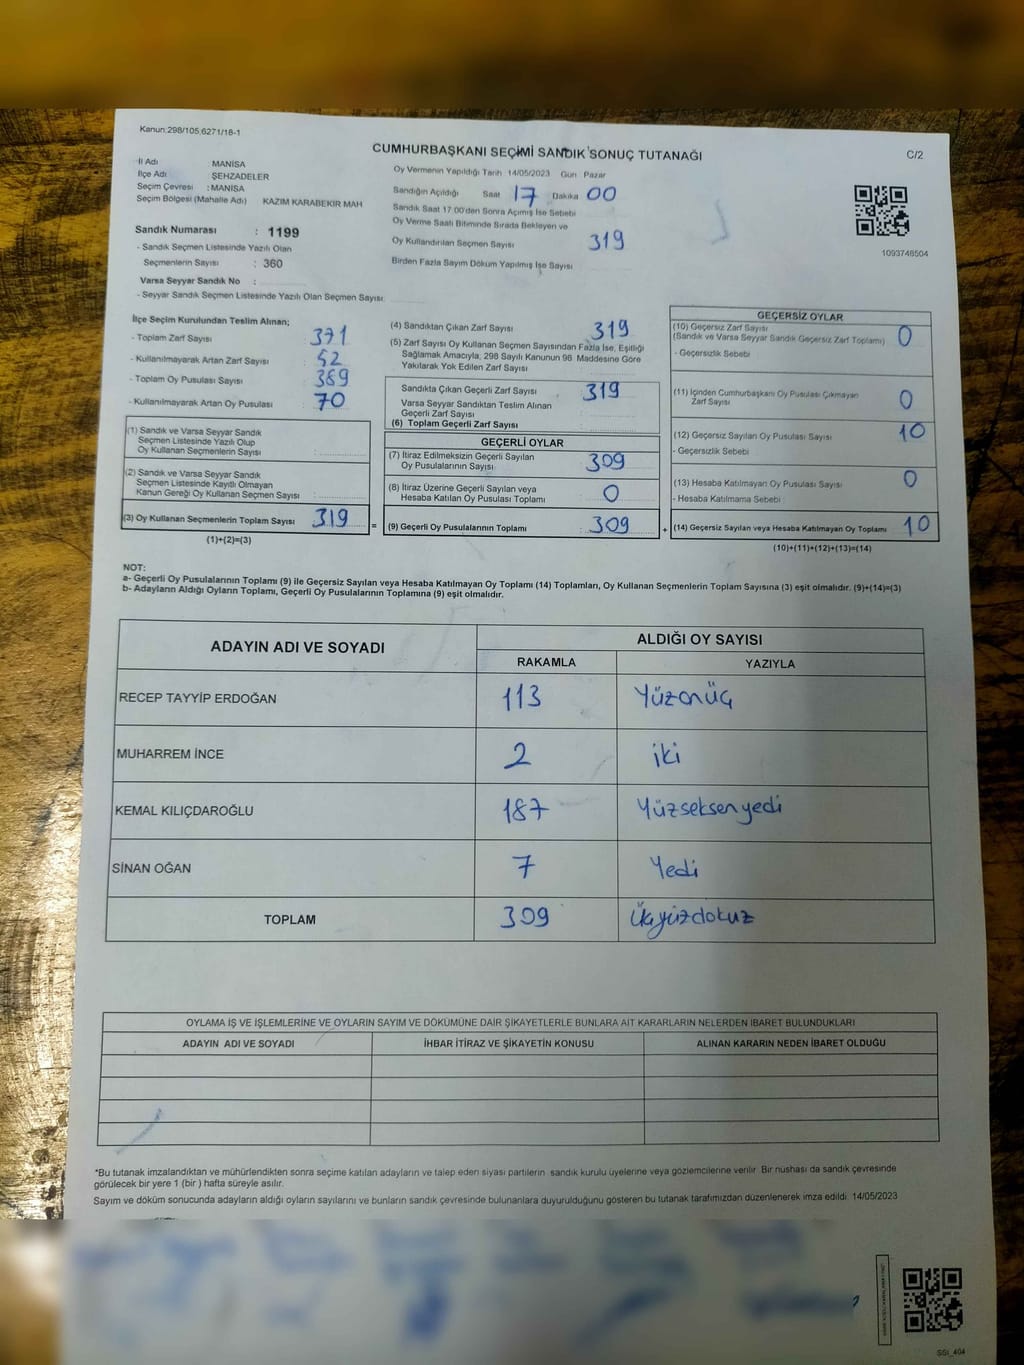 Kanun:298/105,6271/18-1
CUMHURBAŞKANI SEÇİMİ SANDIK SONUÇ TUTANAĞI
C/2
İl Adı : MANİSA
İlçe Adı : ŞEHZADELER
Seçim Çevresi : MANİSA
Seçim Bölgesi (Mahalle Adı) KAZIM KARABEKİR MAH
Oy Vermenin Yapıldığı Tarih 14/05/2023 Gün Pazar
Sandığın Açıldığı Saat 17 Dakika 00
Sandık Saat 17:00'den Sonra Açılmış İse Sebebi
Oy Verme Saati Bitiminde Sırada Bekleyen ve
Oy Kullandırılan Seçmen Sayısı 319
Birden Fazla Sayım Döküm Yapılmış İse Sayısı
1093748504
Sandık Numarası : 1199
- Sandık Seçmen Listesinde Yazılı Olan
Seçmenlerin Sayısı : 360
Varsa Seyyar Sandık No :
- Seyyar Sandık Seçmen Listesinde Yazılı Olan Seçmen Sayısı:
İlçe Seçim Kurulundan Teslim Alınan;
- Toplam Zarf Sayısı 371
- Kullanılmayarak Artan Zarf Sayısı 52
- Toplam Oy Pusulası Sayısı 389
- Kullanılmayarak Artan Oy Pusulası 70
(1) Sandık ve Varsa Seyyar Sandık
Seçmen Listesinde Yazılı Olup
Oy Kullanan Seçmenlerin Sayısı :
(2) Sandık ve Varsa Seyyar Sandık
Seçmen Listesinde Kayıtlı Olmayan
Kanun Gereği Oy Kullanan Seçmen Sayısı :
(3) Oy Kullanan Seçmenlerin Toplam Sayısı 319
(1)+(2)=(3)
=
(4) Sandıktan Çıkan Zarf Sayısı 319
(5) Zarf Sayısı Oy Kullanan Seçmen Sayısından Fazla İse, Eşitliği
Sağlamak Amacıyla, 298 Sayılı Kanunun 98 Maddesine Göre
Yakılarak Yok Edilen Zarf Sayısı
Sandıkta Çıkan Geçerli Zarf Sayısı 319
Varsa Seyyar Sandıktan Teslim Alınan
Geçerli Zarf Sayısı
(6) Toplam Geçerli Zarf Sayısı
GEÇERLİ OYLAR
(7) İtiraz Edilmeksizin Geçerli Sayılan
Oy Pusulalarının Sayısı 309
(8) İtiraz Üzerine Geçerli Sayılan veya
Hesaba Katılan Oy Pusulası Toplamı 0
(9) Geçerli Oy Pusulalarının Toplamı 309
+
GEÇERSİZ OYLAR
(10) Geçersiz Zarf Sayısı
(Sandık ve Varsa Seyyar Sandık Geçersiz Zarf Toplamı) 0
- Geçersizlik Sebebi
(11) İçinden Cumhurbaşkanı Oy Pusulası Çıkmayan
Zarf Sayısı 0
(12) Geçersiz Sayılan Oy Pusulası Sayısı 10
- Geçersizlik Sebebi
(13) Hesaba Katılmayan Oy Pusulası Sayısı 0
- Hesaba Katılmama Sebebi
(14) Geçersiz Sayılan veya Hesaba Katılmayan Oy Toplamı 10
(10)+(11)+(12)+(13)=(14)
NOT:
a- Geçerli Oy Pusulalarının Toplamı (9) ile Geçersiz Sayılan veya Hesaba Katılmayan Oy Toplamı (14) Toplamları, Oy Kullanan Seçmenlerin Toplam Sayısına (3) eşit olmalıdır. (9)+(14)=(3)
b- Adayların Aldığı Oyların Toplamı, Geçerli Oy Pusulalarının Toplamına (9) eşit olmalıdır.
ADAYIN ADI VE SOYADI ALDIĞI OY SAYISI
RAKAMLA YAZIYLA
RECEP TAYYİP ERDOĞAN 113 Yüzonüç
MUHARREM İNCE 2 iki
KEMAL KILIÇDAROĞLU 187 Yüzseksenyedi
SİNAN OĞAN 7 Yedi
TOPLAM 309 Üçyüzdokuz
OYLAMA İŞ VE İŞLEMLERİNE VE OYLARIN SAYIM VE DÖKÜMÜNE DAİR ŞİKAYETLERLE BUNLARA AİT KARARLARIN NELERDEN İBARET BULUNDUKLARI
ADAYIN ADI VE SOYADI İHBAR İTİRAZ VE ŞİKAYETİN KONUSU ALINAN KARARIN NEDEN İBARET OLDUĞU
*Bu tutanak imzalandıktan ve mühürlendikten sonra seçime katılan adayların ve talep eden siyasi partilerin sandık kurulu üyelerine veya gözlemcilerine verilir. Bir nüshası da sandık çevresinde
görülecek bir yere 1 (bir) hafta süreyle asılır.
Sayım ve döküm sonucunda adayların aldığı oyların sayılarını ve bunların sandık çevresinde bulunanlara duyurulduğunu gösteren bu tutanak tarafımızdan düzenlenerek imza edildi. 14/05/2023
SSI_404